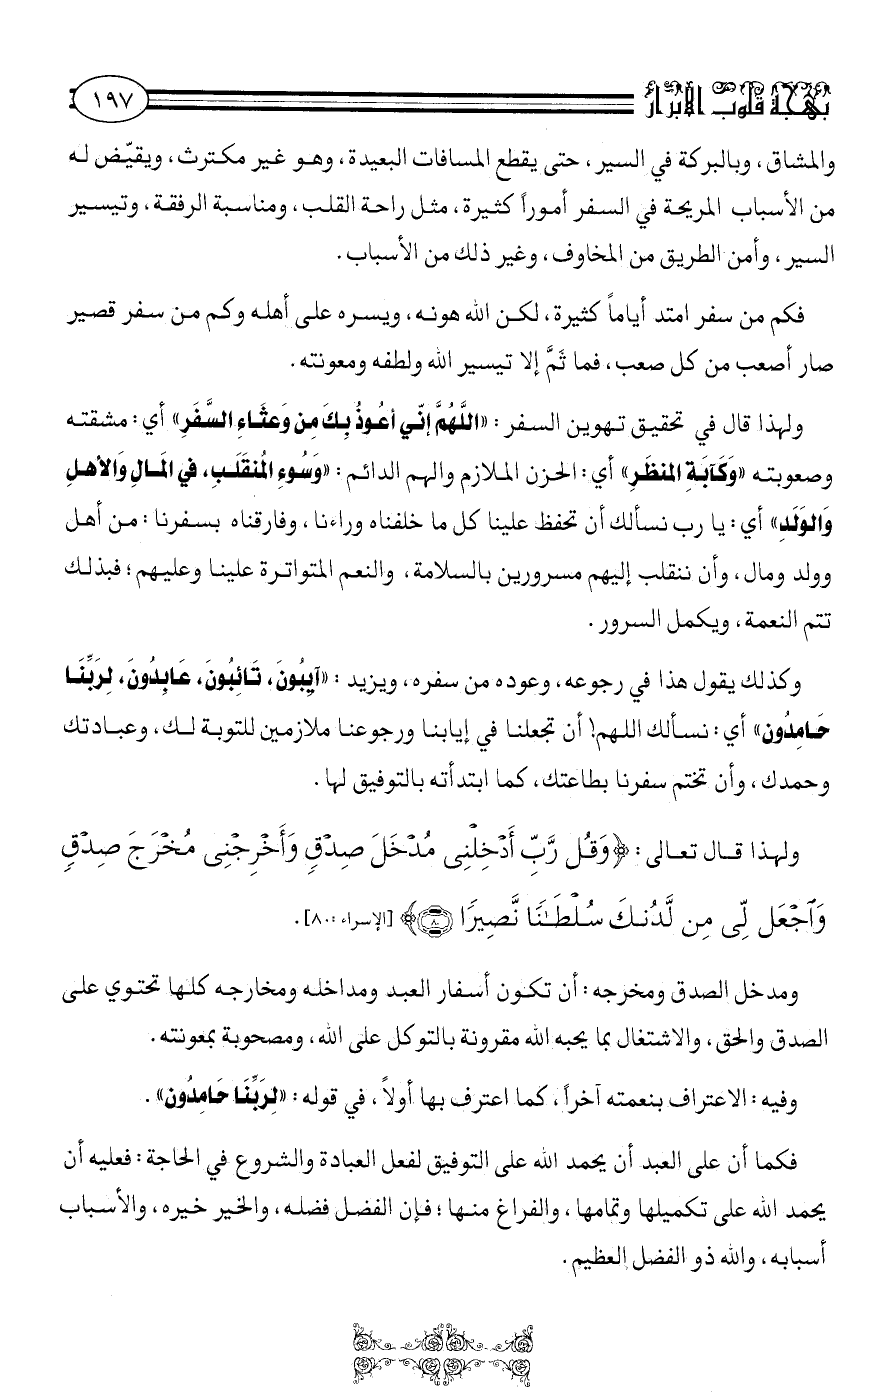 بهجة قلوب الأبرار
١٩٧
والمشاق، وبالبركة في السير، حتى يقطع المسافات البعيدة، وهو غير مكترث، ويقيّض له
من الأسباب المريحة في السفر أموراً كثيرة، مثل راحة القلب، ومناسبة الرفقة، وتيسير
السير، وأمن الطريق من المخاوف، وغير ذلك من الأسباب.
فكم من سفر امتد أياماً كثيرة، لكن الله هونه، ويسره على أهله وكم من سفر قصير
صار أصعب من كل صعب، فما ثَمَّ إلا تيسير الله ولطفه ومعونته.
ولهذا قال في تحقيق تهوين السفر: «اللَّهُمَّ إنّي أعُوذُ بِكَ مِن وَعثَاءِ السَّفَرِ» أي: مشقته
وصعوبته «وَكَآبَةِ المنظَرِ» أي: الحزن الملازم والهم الدائم: «وَسُوءِ المُنقَلَبِ، في المَالِ وَالأهلِ
وَالوَلَدِ» أي: يا رب نسألك أن تحفظ علينا كل ما خلفناه وراءنا، وفارقناه بسفرنا: من أهل
وولد ومال، وأن ننقلب إليهم مسرورين بالسلامة، والنعم المتواترة علينا وعليهم؛ فبذلك
تتم النعمة، ويكمل السرور.
وكذلك يقول هذا في رجوعه، وعوده من سفره، ويزيد: «آيِبُونَ، تَائِبُونَ، عَابِدُونَ، لِرَبِّنَا
حَامِدُون» أي: نسألك اللهم! أن تجعلنا في إيابنا ورجوعنا ملازمين للتوبة لك، وعبادتك
وحمدك، وأن تختم سفرنا بطاعتك، كما ابتدأته بالتوفيق لها.
ولهذا قال تعالى: ﴿وَقُل رَّبِّ أَدۡخِلۡنِى مُدۡخَلَ صِدۡقٍ وَأَخۡرِجۡنِى مُخۡرَجَ صِدۡقٍ
وَٱجۡعَل لِّى مِن لَّدُنكَ سُلۡطَـٰنًا نَّصِيرًا ٨٠﴾ [الإسراء: ٨٠].
ومدخل الصدق ومخرجه: أن تكون أسفار العبد ومداخله ومخارجه كلها تحتوي على
الصدق والحق، والاشتغال بما يحبه الله مقرونة بالتوكل على الله، ومصحوبة بمعونته.
وفيه: الاعتراف بنعمته آخراً، كما اعترف بها أولاً، في قوله: «لِرَبِّنَا حَامِدُون».
فكما أن على العبد أن يحمد الله على التوفيق لفعل العبادة والشروع في الحاجة: فعليه أن
يحمد الله على تكميلها وتمامها، والفراغ منها؛ فإن الفضل فضله، والخير خيره، والأسباب
أسبابه، والله ذو الفضل العظيم.